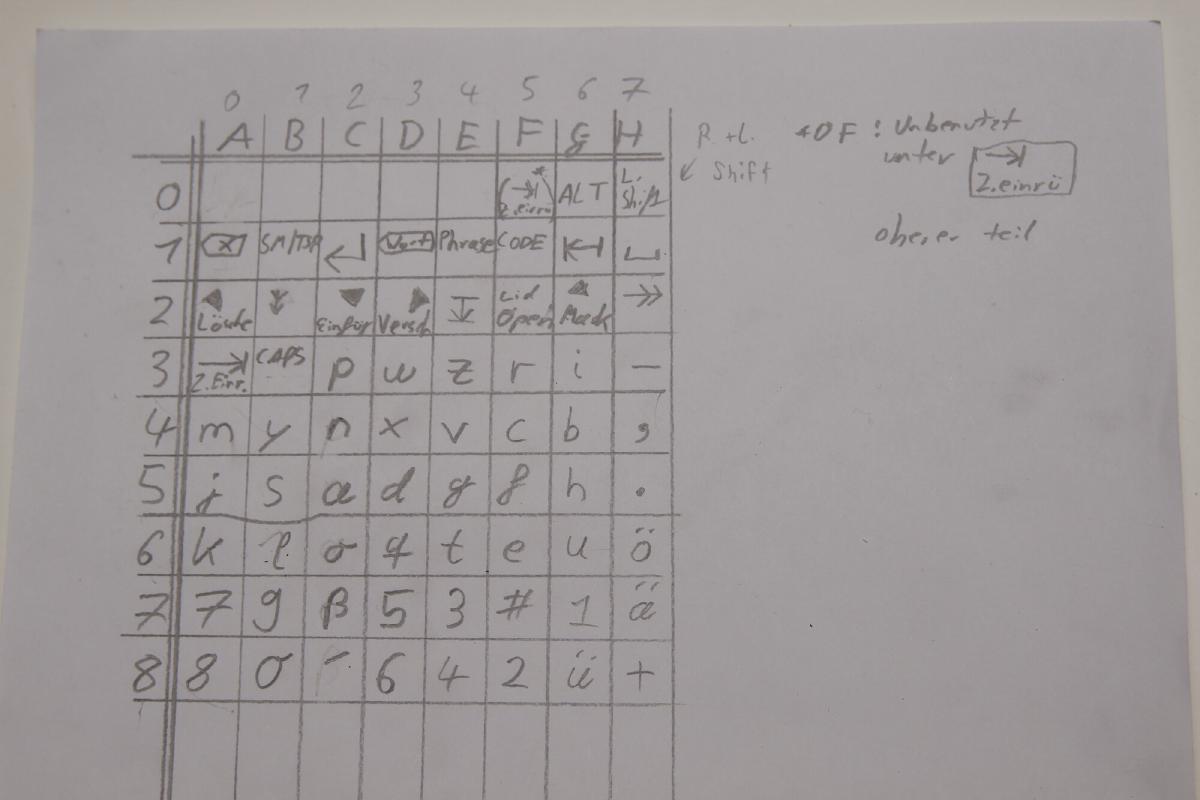 0 1 2 3 4 5 6 7
A B C D E F G H
R. + L. ↙ Shift
*0F : Unbenutzt
unter →| Z.einrü
oberer teil
0 →|* ALT L. Shift
1 ⌫ ↵ Wort Phrase CODE |↔| ⎵
2 ◀ Lösche ▼ Einfüg ▶ Versch ↧ Lid Open ▲ ↠
3 →| Z.Einr. CAPS p w z r i –
4 m y n x v c b ,
5 j s a d g f h .
6 k l o q t e u ö
7 7 9 β 5 3 # 1 ä
8 8 0 ´ 6 4 2 ü +